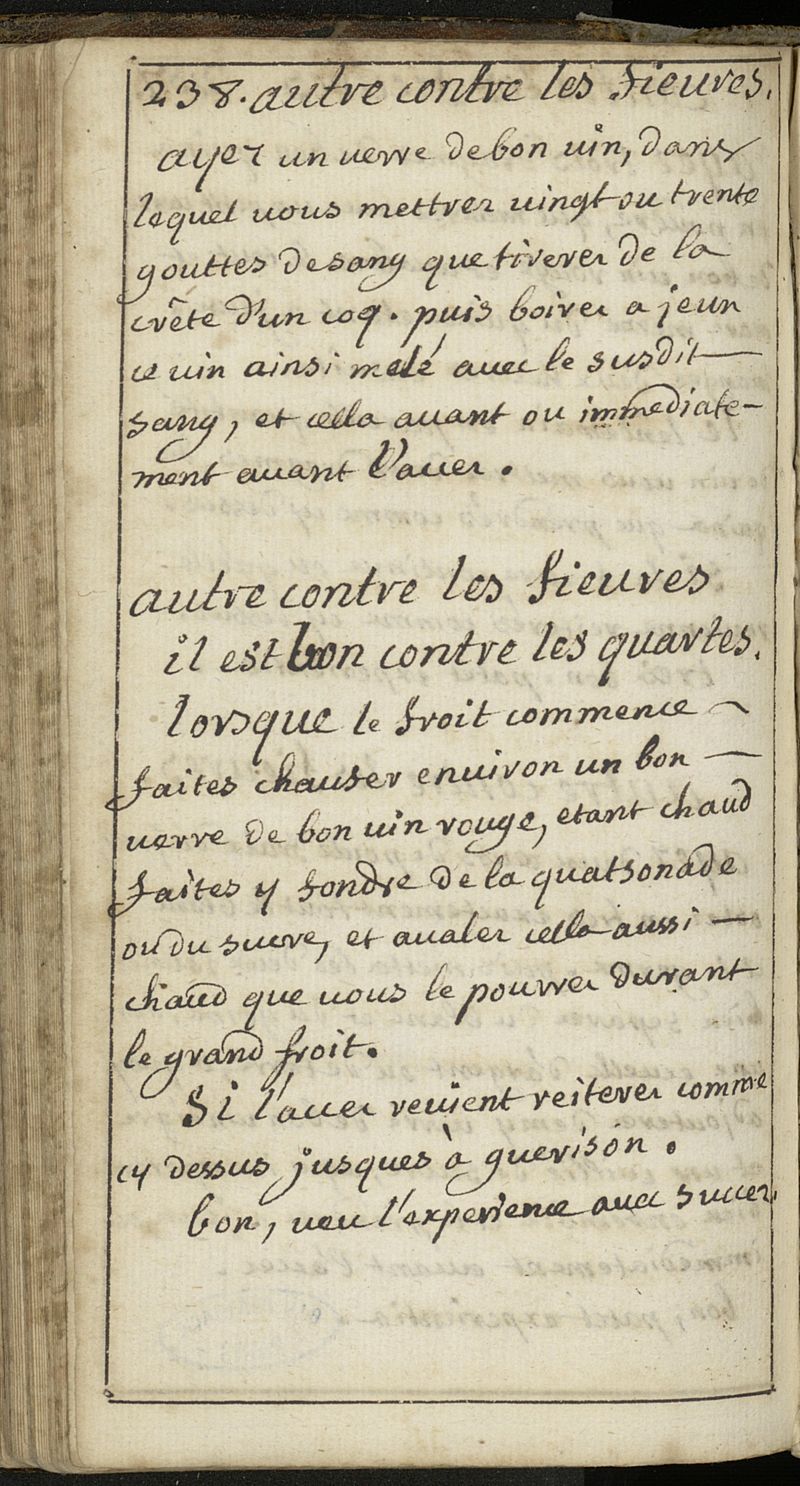 238. autre contre les fieures.
ayez un uerre de bon uin, dans
lequel uous mettrez uingt ou trente
gouttes de sang que tirerez de la
crête d'un coq. puis boirez a jeun
ce uin ainsi melé auec le susdit
sang, et cella auant ou immediate-
ment auant l'accez.
autre contre les fieures
il est bon contre les quartes.
lorsque le froit commence
faites chaufer enuiron un bon
uerre de bon uin rouge, etant chaud
faites y fondre de la quatsonade
ou du sucre, et aualez cella aussi
chaud que uous le pourrez durant
le grand froit.
Si l'accez reuient reiterez comme
cy dessus jusques à guerison.
bon, ueu l'experience auec succez.